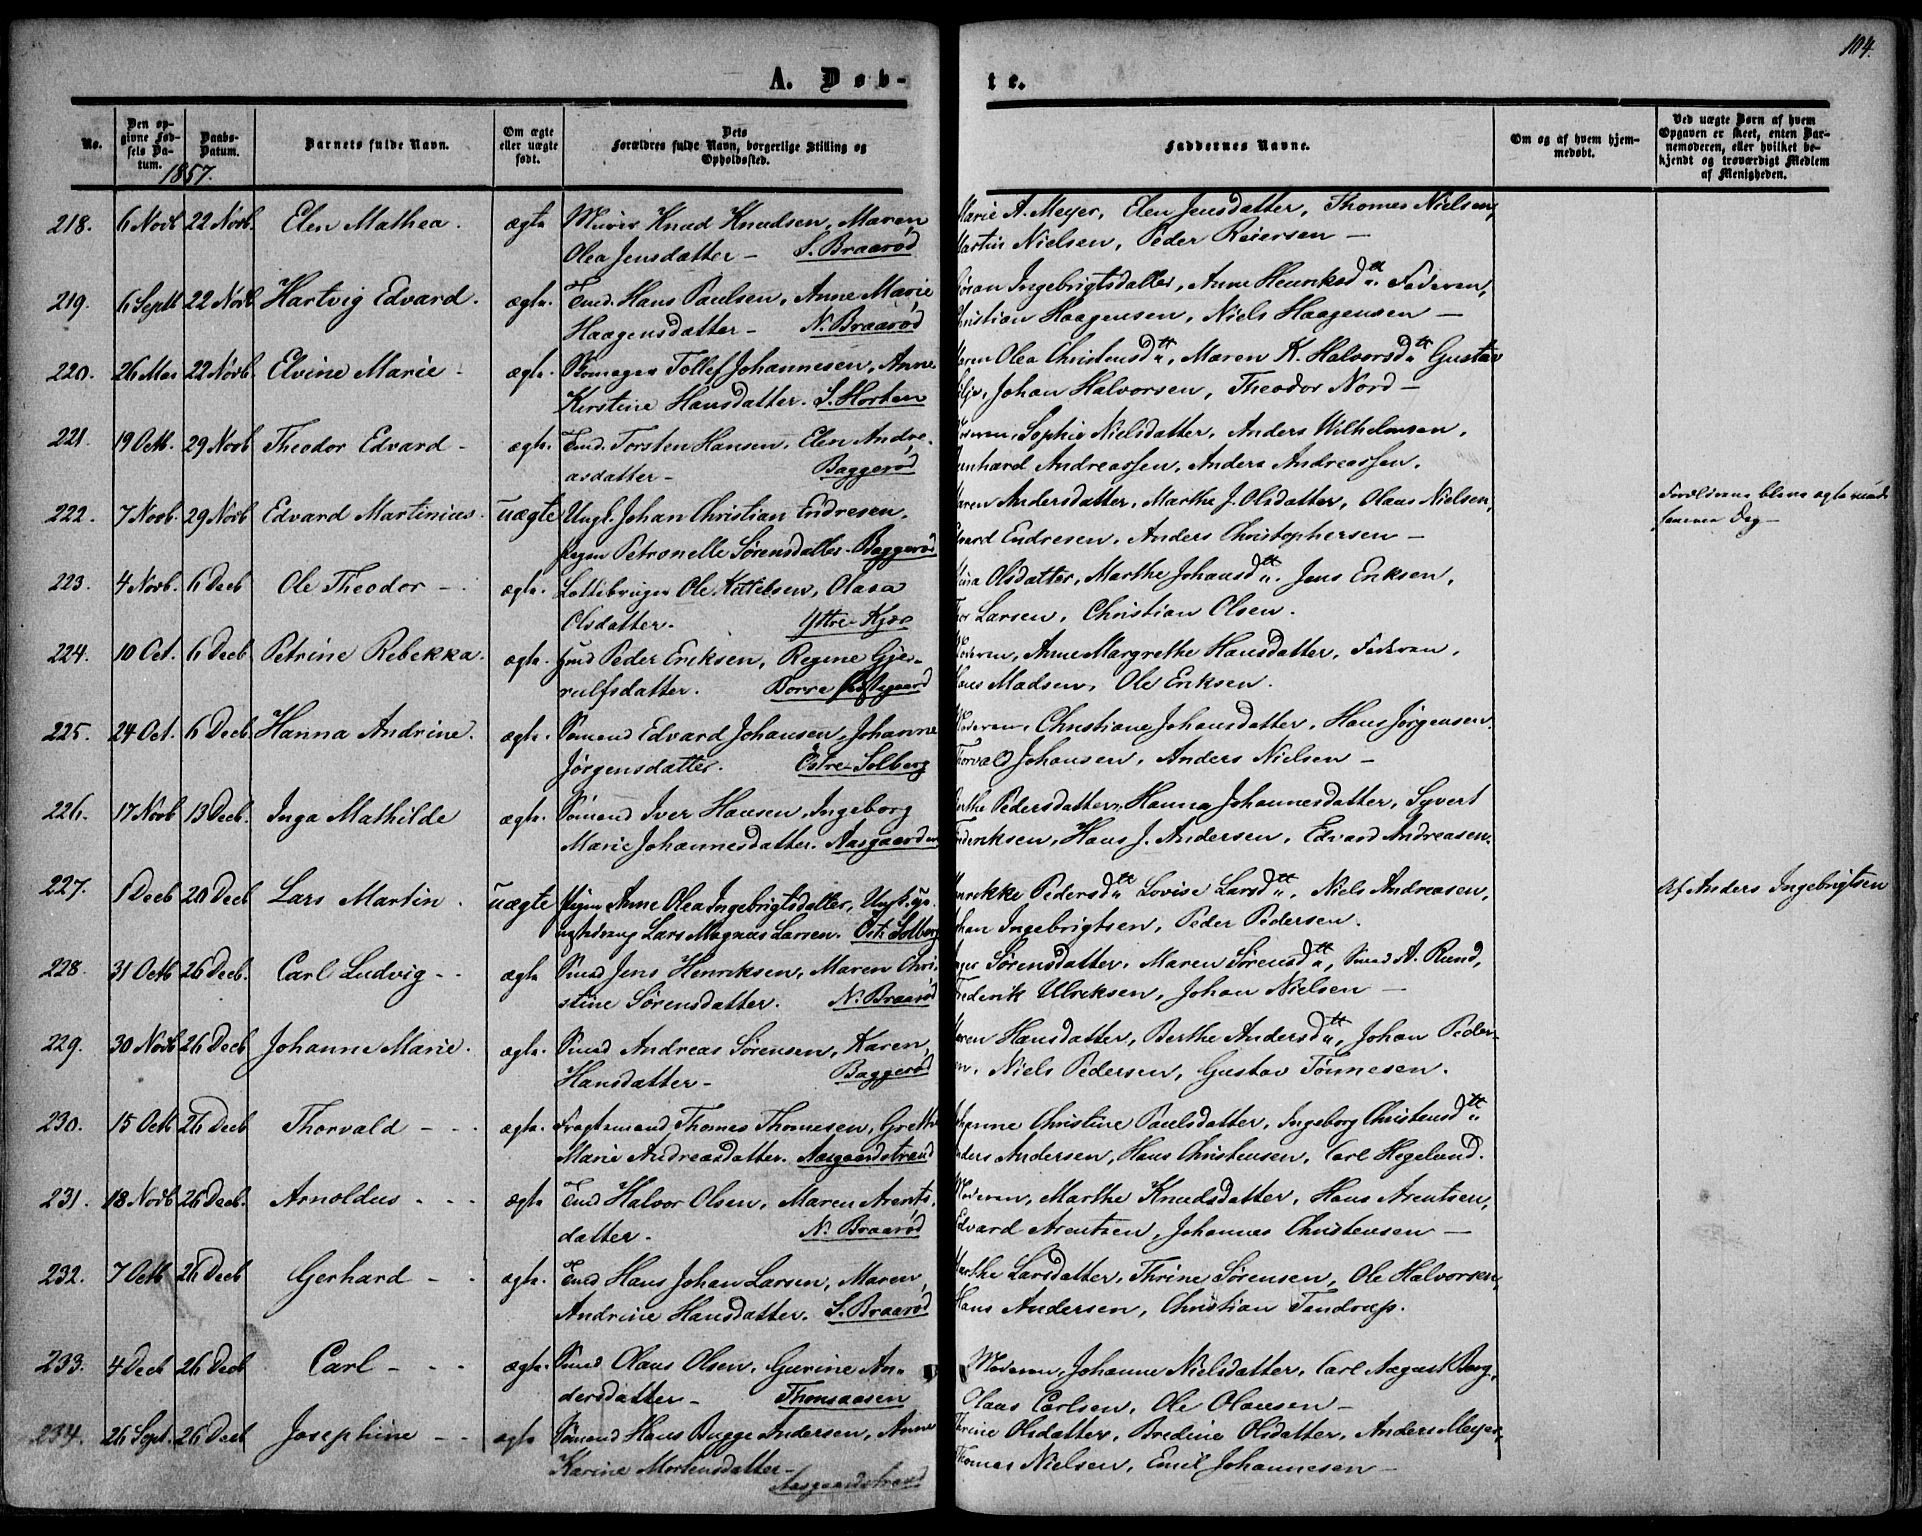 104.
A. Døb-
te.
No.
Den op-
givne Fød-
sels Da-
tum.
Daabs-
Datum.
1857.
Barnets fulde Navn.
Om ægte
eller uægte
født.
Dets
Forældres fulde Navn, borgerlige Stilling og
Opholdssted.
Faddernes Navne.
Om og af hvem hjem-
medøbt.
Ved uægte Børn af hvem
Opgaven er skeet, enten Bar-
nemoderen, eller hvilket be-
kjendt og troværdigt Medlem
af Menigheden.
218. 6 Novb 22 Novb. Elen Mathea. ægta Knud Knudsen, Maren Marie A. Meyer, Elen Jensdatter, Thomas Nielsen,
Olea Jensdatter - S. Braarød Martin Nielsen, Peder Reiersen -
219. 6 Septb 22 Novb Hartvig Edvard. ægta. Hans Paulsen, Anne Marie Ingebrigtsdatter, Anne Henriksdtr. Faderen,
Haagensdatter - N. Braarød Christian Haagensen, Niels Haagensen -
220. 26 Mai 22 Novb. Elvine Marie - ægta. Tollef Johannesen, Anne Maren Olea Christensdtr, Maren K. Halvorsdtr Gustav
Kerstine Hansdatter. S. Horten Johan Halvorsen, Theodor Nord -
221. 19 Octb. 29 Novb Theodor Edvard - ægta. Torsten Hansen, Elen Andre- Sophie Nielsdatter, Anders Wilhelmsen,
asdatter - Baggerød Andreassen, Anders Andreassen.
222. 7 Novb. 29 Novb Edvard Martinius. uægte Ungk. Johan Christian Endresen, Maren Andersdatter, Marthe J. Olsdatter, Olaus Nielsen, Forældrene bleve ægteviede
Pigen Petronelle Sørensdatter - Baggerød Edvard Endresen, Anders Christophersen - samme Dag -
223. 4 Novb. 6 Decb Ole Theodor - ægta. Ole Kittelsen, Olava Olsdatter, Marthe Johansdtr. Jens Eriksen,
Olsdatter. Yttre-Kjær Larsen, Christian Olsen.
224. 10 Oct. 6 Decb Petrine Rebekka. ægta. Peder Eriksen, Regine Gjer- Moderen, Anne Margrethe Hansdatter, Faderen,
rulfsdatter. Borre Hans Madsen, Ole Eriksen.
225. 24 Oct. 6 Decb. Hanna Andrine. ægta. Sømand Edvard Johansen, Johanne Moderen, Christiane Johansdatter, Hans Jørgensen.
Jørgensdatter. Østre-Solberg Thorvald Johansen, Anders Nielsen -
226. 17 Novb 13 Decb. Inga Mathilde ægta. Sømand Iver Hansen, Ingeborg Pedersdatter, Hanna Johannesdatter, Syvert
Marie Johannesdatter. Frederiksen, Hans J. Andersen, Edvard Andreasen.
227. 1 Decb 20 Decb Lars Martin. uægte Pigen Anne Olea Ingebrigtsdatter, Ungk. Pedersdtr Lovise Larsdtr, Niels Andreasen, Af Anders Ingebrigtsen
Lars Magnus Larsen. Østr. Solberg Johan Ingebrigtsen, Peder Pedersen.
228. 31 Octb 26 Decb. Carl Ludvig - - ægta Jens Henriksen, Maren Chri- Sørensdatter, Maren Sørensdtr, A. Rund,
stine Sørensdatter. N. Braarød Frederik Ulriksen, Johan Nielsen -
229. 30 Novb 26 Decb Johanne Marie. ægta. Andreas Sørensen, Karen Maren Hansdatter, Berthe Andersdtr, Johan Peder-
Hansdatter - Baggerød sen, Niels Pedersen, Gustav Tønnesen.
230. 15 Octb 26 Decb Thorvald - - - ægta. Fragtemand Thomas Thomesen, Grethe Johanne Christine Paulsdatter, Ingeborg Christensdtr
Marie Andreasdatter. Aasgaardstrand Anders Andersen, Hans Christensen, Carl Hegelund.
231. 18 Novb 26 Decb. Arnoldus - - - ægta Halvor Olsen, Maren Arents- Moderen, Marthe Knudsdatter, Hans Arentsen,
datter. N. Braarød Edvard Arentsen, Johannes Christensen -
232. 7 Octb 26 Decb Gerhard - - ægta. Hans Johan Larsen, Maren Marthe Larsdatter, Thrine Sørensen, Ole Halvorsen,
Andrine Hansdatter. S. Braarød Hans Andersen, Christian Tandrup.
233. 4 Decb 26 Decb Carl - - - ægta. Olaus Olsen, Gurine An- Moderen, Johanne Nielsdatter, Carl August Berg,
dersdatter - Olaus Carlsen, Ole Olausen -
234. 26 Sept. 26 Decb Josephine - - ægta Sømand Hans Bugge Andersen, Anne Thrine Olsdatter, Bredine Olsdatter, Anders Meyer,
Karine Mortensdatter - Aasgaardstrand Thomas Nielsen, Emil Johannesen -